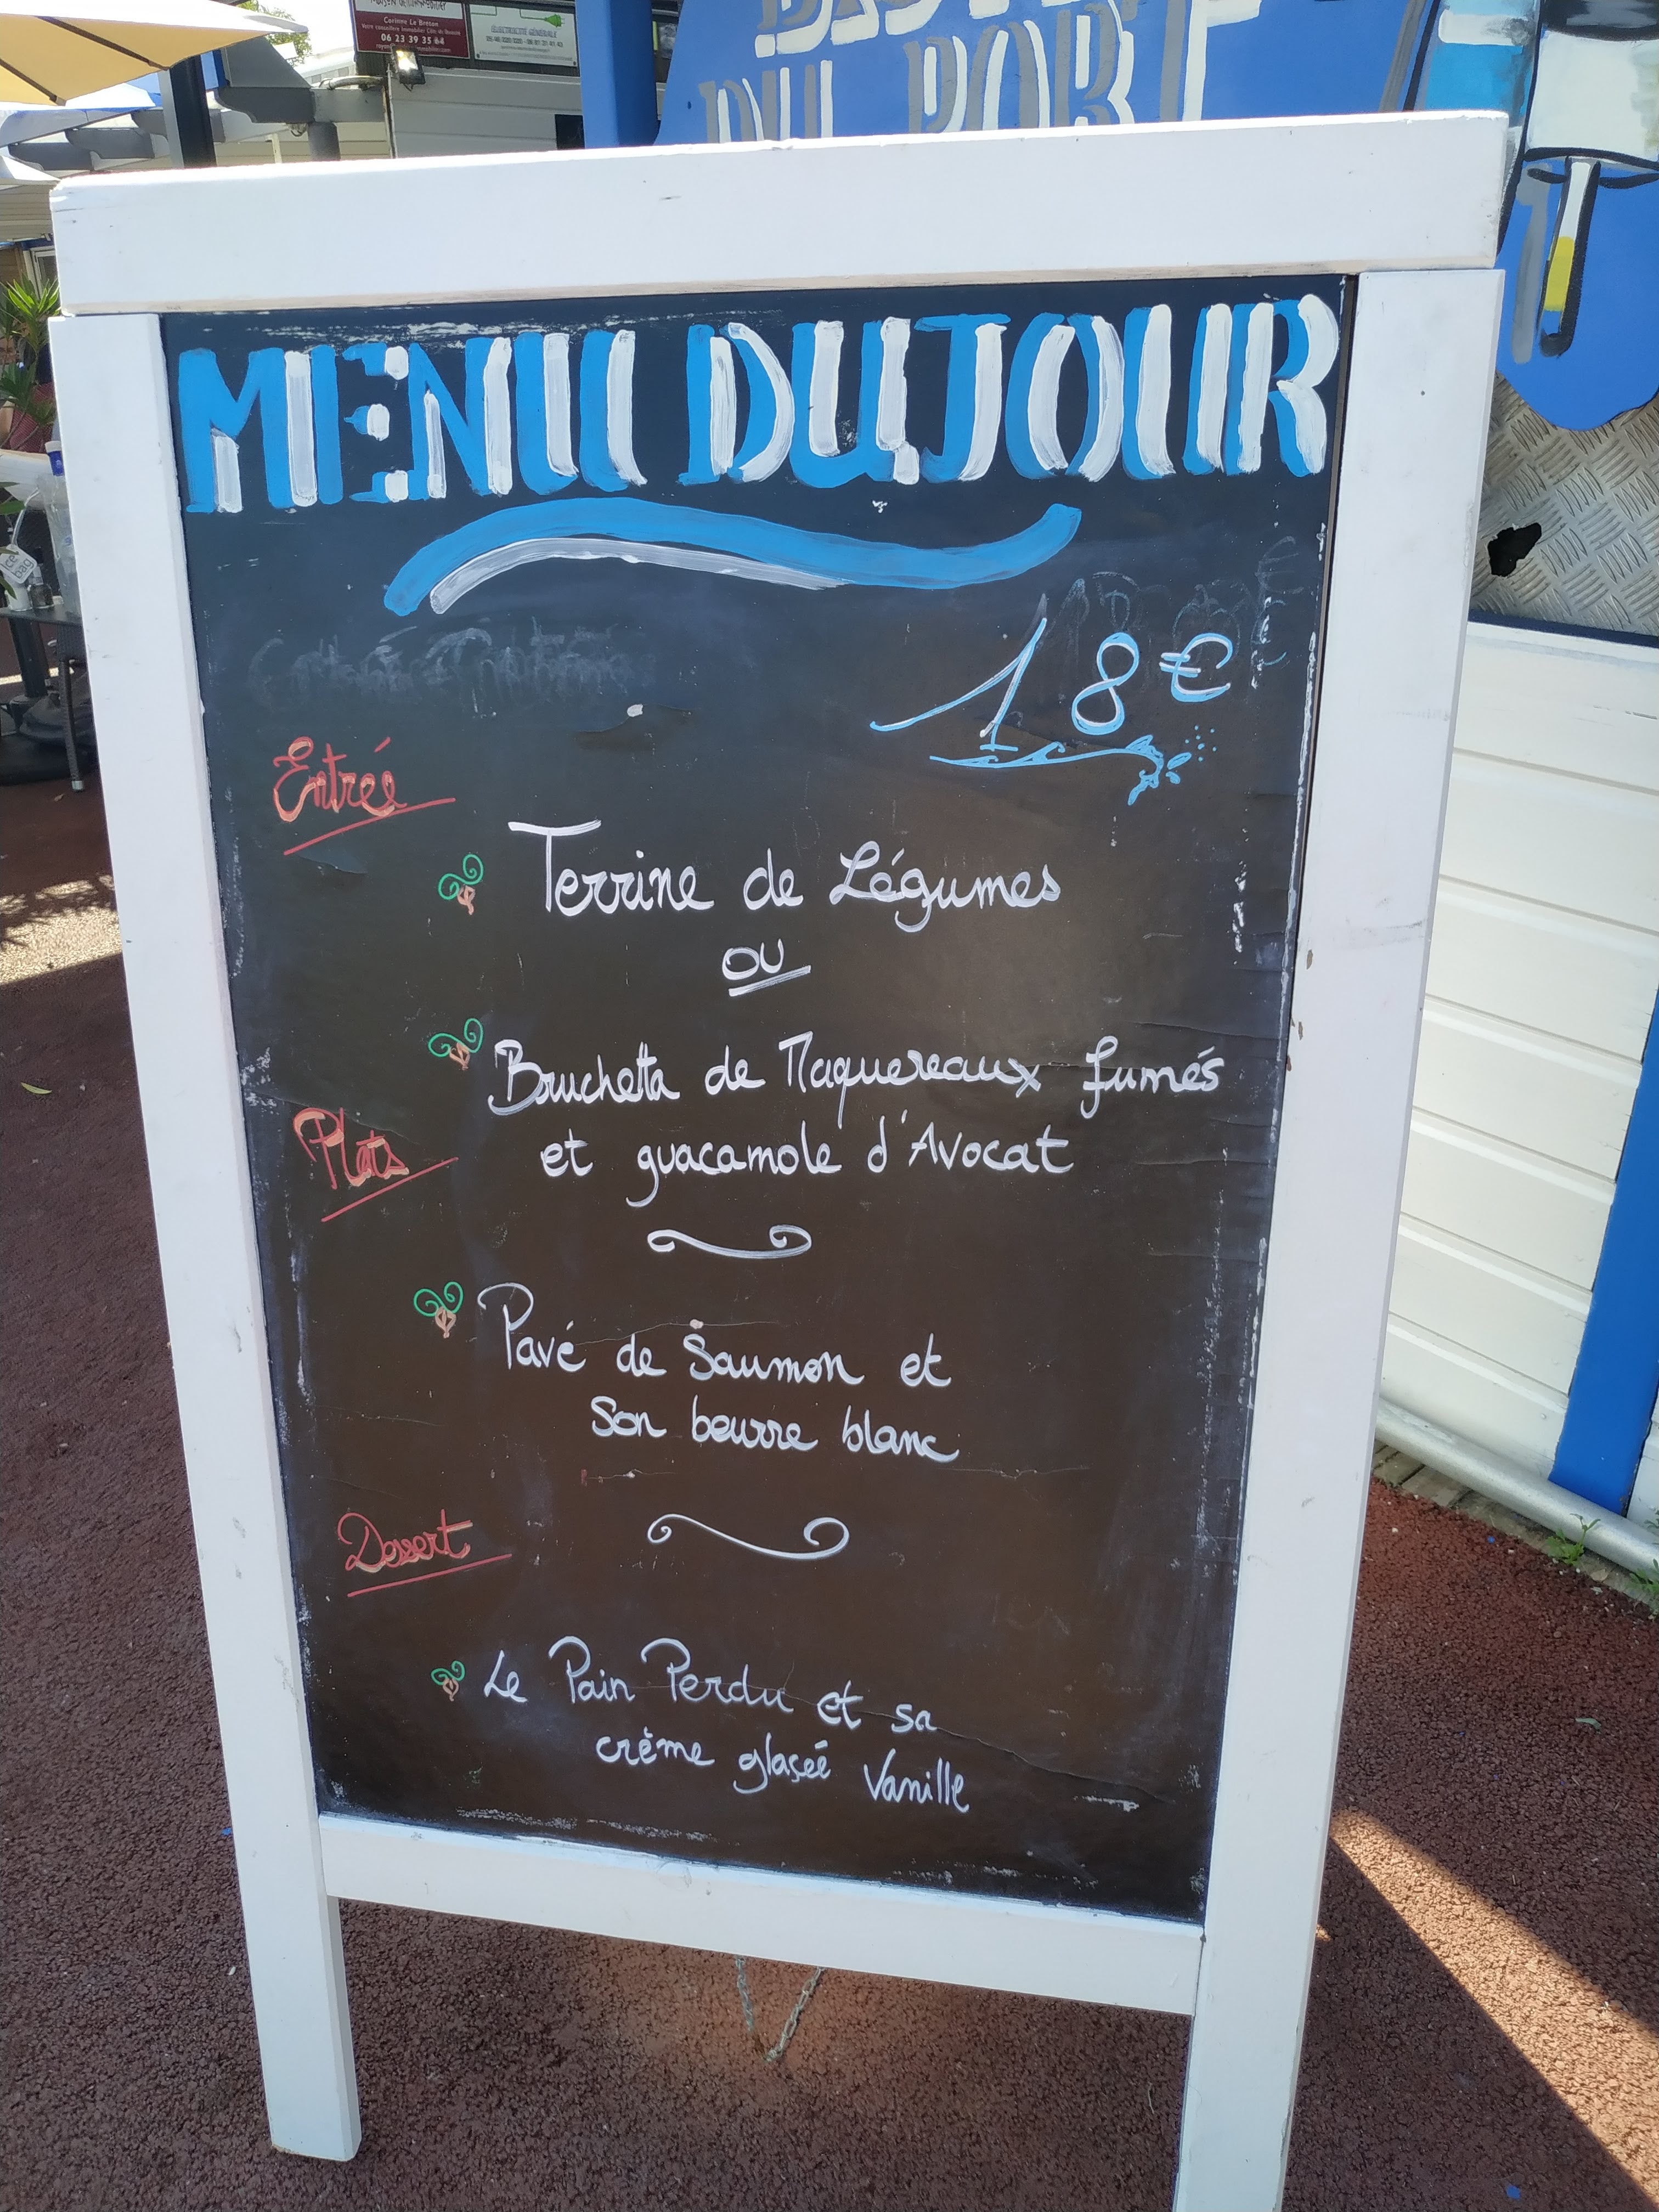 Corinne Le Bresan
06 23 39 35 64
ÉLECTRICITÉ GÉNÉRALE
DU PORT
ice bag
MENU DU JOUR
18€
Entrée
Terrine de Légumes
ou
Bruchetta de Maquereaux fumés
et guacamole d'Avocat
Plats
Pavé de Saumon et
Son beurre blanc
Dessert
Le Pain Perdu et sa
crème glaçée Vanille